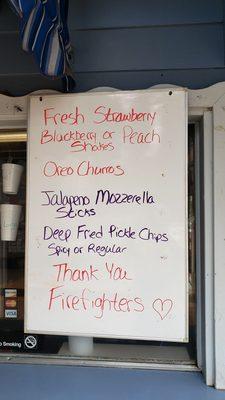 Fresh Strawberry
Blackberry or Peach
Shakes
Oreo Churros
Jalapeno Mozzerella
Sticks
Deep Fried Pickle Chips
Spicy or Regular
Thank You
Firefighters
VISA
No Smoking